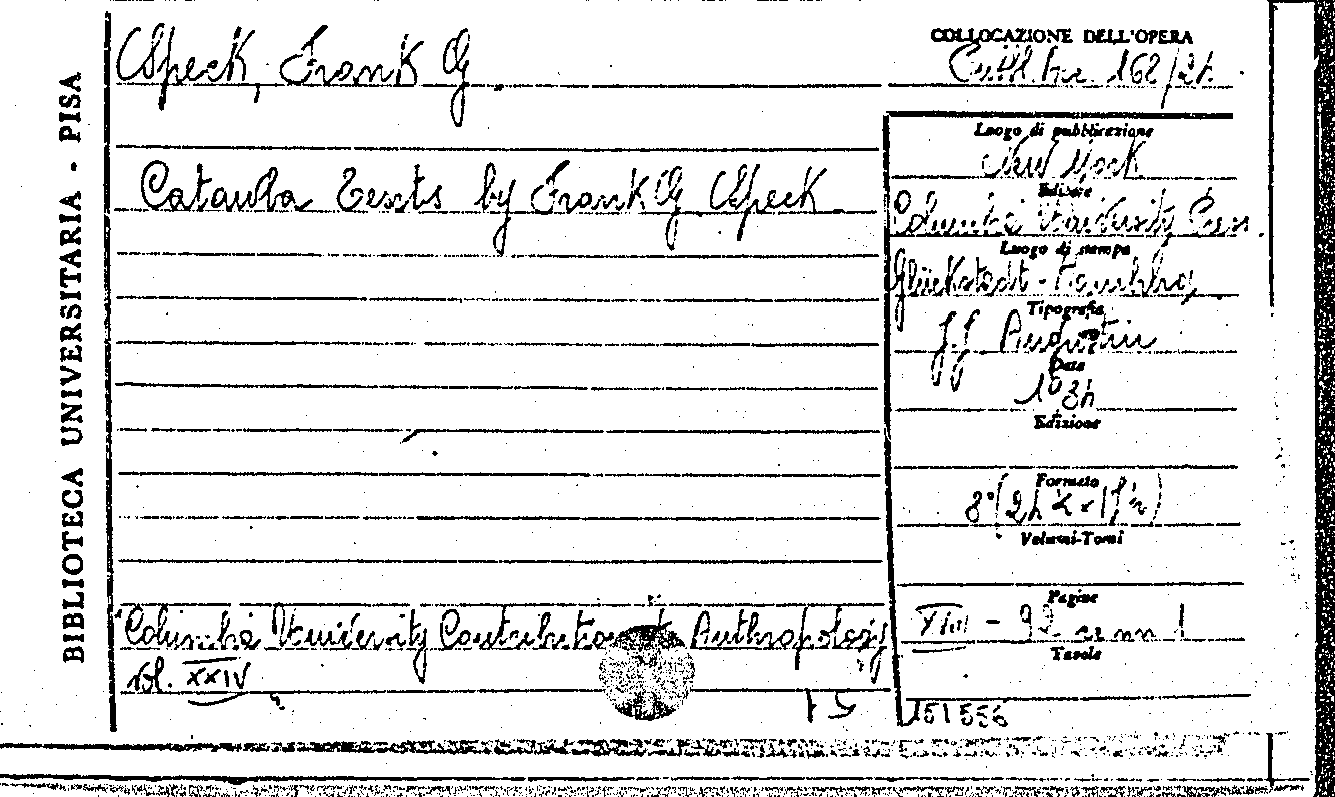 BIBLIOTECA UNIVERSITARIA - PISA
Speck, Frank G.
COLLOCAZIONE DELL'OPERA
162/24.
Catawba Texts by Frank G. Speck
Luogo di pubblicazione
New York
Editore
Columbia University Press.
Luogo di stampa
Glückstadt - Hamburg
Tipografia
J.J. Augustin
Data
1934
Edizione
Formato
8°
Volumi-Tomi
Pagine
XIII - 92
Tavole
Columbia University Contributions to Anthropology
vol. XXIV
151556